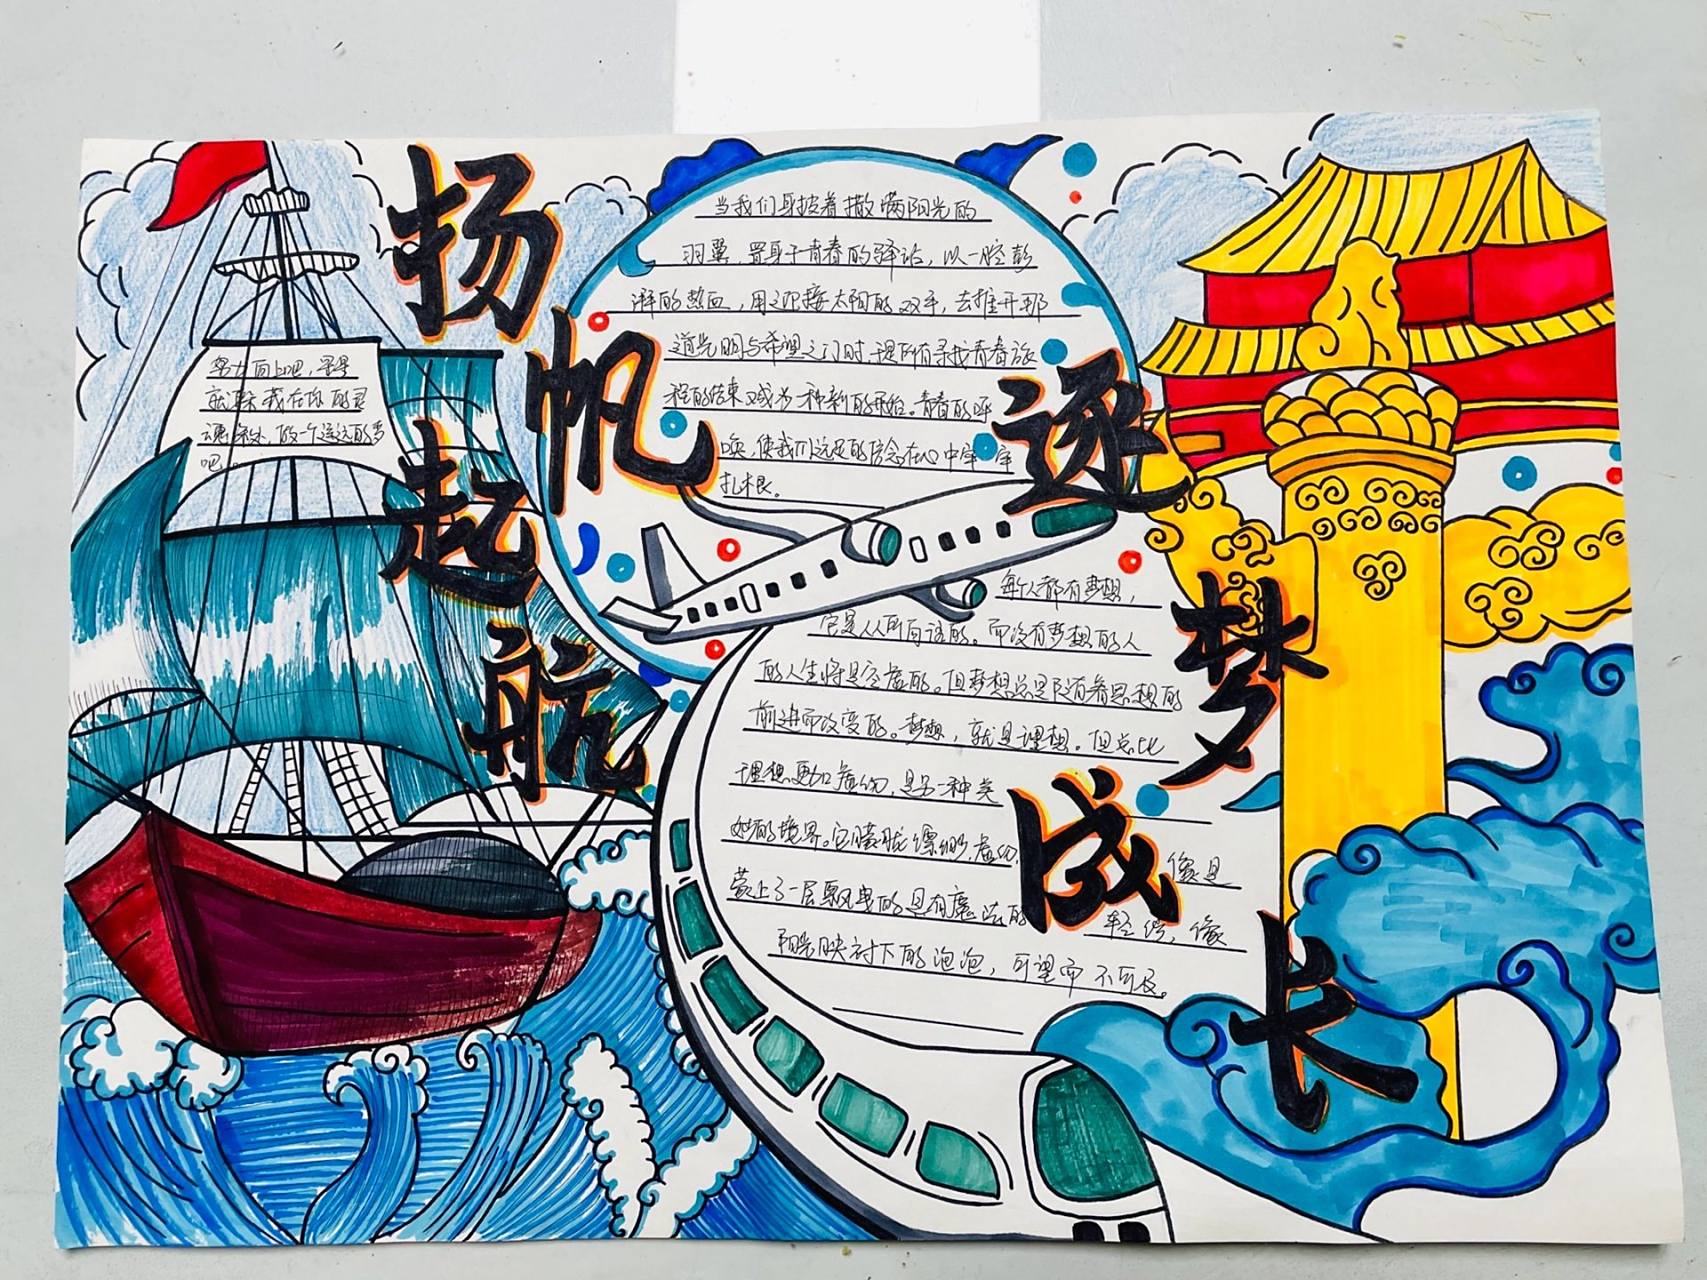 扬帆起航
逐梦成长
努力向上吧，星星
就躲
我在你的灵
魂
做一个遥远的梦
吧。
当我们身披着撒满阳光的
羽翼，置身于青春的驿站，以一腔彭
湃的热血，用迎接太阳的双手，去推开那
道光明与希望之门时，
所有寻找青春旅
程的结束
成为一种新的开始。青春的呼
唤，使我们远足的信念在心中牢牢
扎根。
每人都有梦想，
它是人所自诩的。而没有梦想的人
的人生将是空虚的。但梦想总是
随着思想的
前进而改变的。梦想，就是理想。但总比
理想更加虚幻，是另一种美
妙的境界。它朦胧缥缈，虚幻，
像是
蒙上了一层飘曳的具有魔法的
轻纱，像
阳光映衬下的泡泡，可望而不可及。